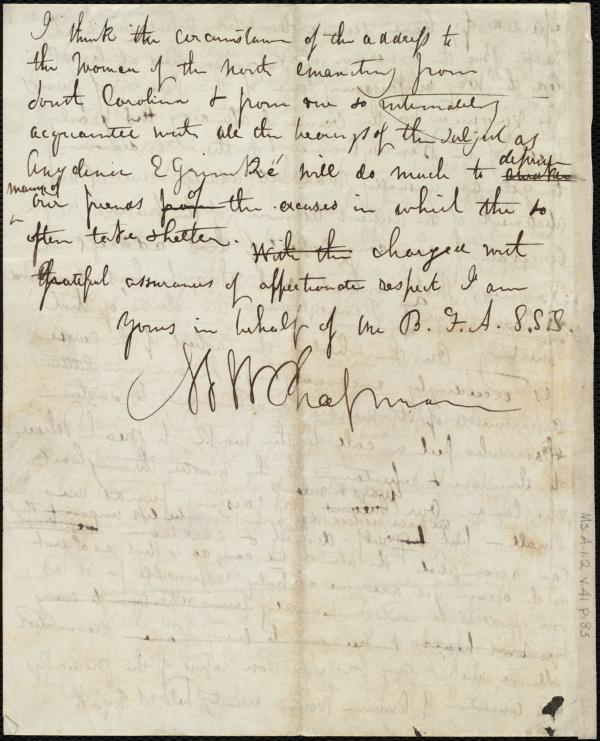 I think the circumstance of the address to
the Women of the North emanating from
South Carolina & from one so intimately
acquainted with all the bearings of the subject as
Angelina E Grimké will do much to deprive
many of
our friends of the excuses in which they so
often take shelter. With the charged with
Grateful assurances of affectionate respect I am
Yours in behalf of the B. F. A. S. S.
M W Chapman
MS.A.1.2 v.41 p.83